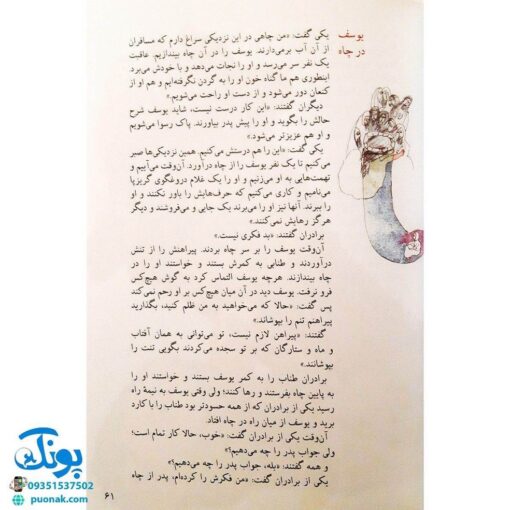 یوسف
در چاه
یکی گفت: «من چاهی در این نزدیکی سراغ دارم که مسافران
از آن آب برمی‌دارند. یوسف را در آن چاه بیندازیم. عاقبت
یک نفر سر می‌رسد و او را نجات می‌دهد و با خودش می‌برد.
اینطوری هم ما گناه خون او را به گردن نگرفته‌ایم و هم او از
کنعان دور می‌شود و از دست او راحت می‌شویم.»
دیگران گفتند: «این کار درست نیست، شاید یوسف شرح
حالش را بگوید و او را پیش پدر بیاورند. پاک رسوا می‌شویم
و او هم عزیزتر می‌شود.»
یکی گفت: «این را هم درستش می‌کنیم. همین نزدیکی‌ها صبر
می‌کنیم تا یک نفر یوسف را از چاه درآورد. آن‌وقت می‌آییم و
تهمت‌هایی به او می‌زنیم و او را یک غلام دروغگوی گریزپا
می‌نامیم و کاری می‌کنیم که حرف‌هایش را باور نکنند و او
را ببرند. آنها نیز او را می‌برند یک جایی و می‌فروشند و دیگر
هرگز رهایش نمی‌کنند.»
برادران گفتند: «بد فکری نیست.»
آن‌وقت یوسف را بر سر چاه بردند. پیراهنش را از تنش
درآوردند و طنابی به کمرش بستند و خواستند او را در
چاه بیندازند. هرچه یوسف التماس کرد به گوش هیچ‌کس
فرو نرفت. یوسف دید در آن میان هیچ‌کس بر او رحم نمی‌کند
پس گفت: «حالا که می‌خواهید به من ظلم کنید، بگذارید
پیراهنم تنم را بپوشاند.»
گفتند: «پیراهن لازم نیست، تو می‌توانی به همان آفتاب
و ماه و ستارگان که بر تو سجده می‌کردند بگویی تنت را
بپوشانند.»
برادران طناب را به کمر یوسف بستند و خواستند او را
به پایین چاه بفرستند و رها کنند؛ ولی وقتی یوسف به نیمهٔ راه
رسید یکی از برادران که از همه حسودتر بود طناب را با کارد
برید و یوسف از میان راه در چاه افتاد.
آن‌وقت یکی از برادران گفت: «خوب، حالا کار تمام است؛
ولی جواب پدر را چه می‌دهیم؟»
و همه گفتند: «بله، جواب پدر را چه می‌دهیم؟»
یکی از برادران گفت: «من فکرش را کرده‌ام، پدر از چاه
۶۱
پونک
09351537502
puonak.com